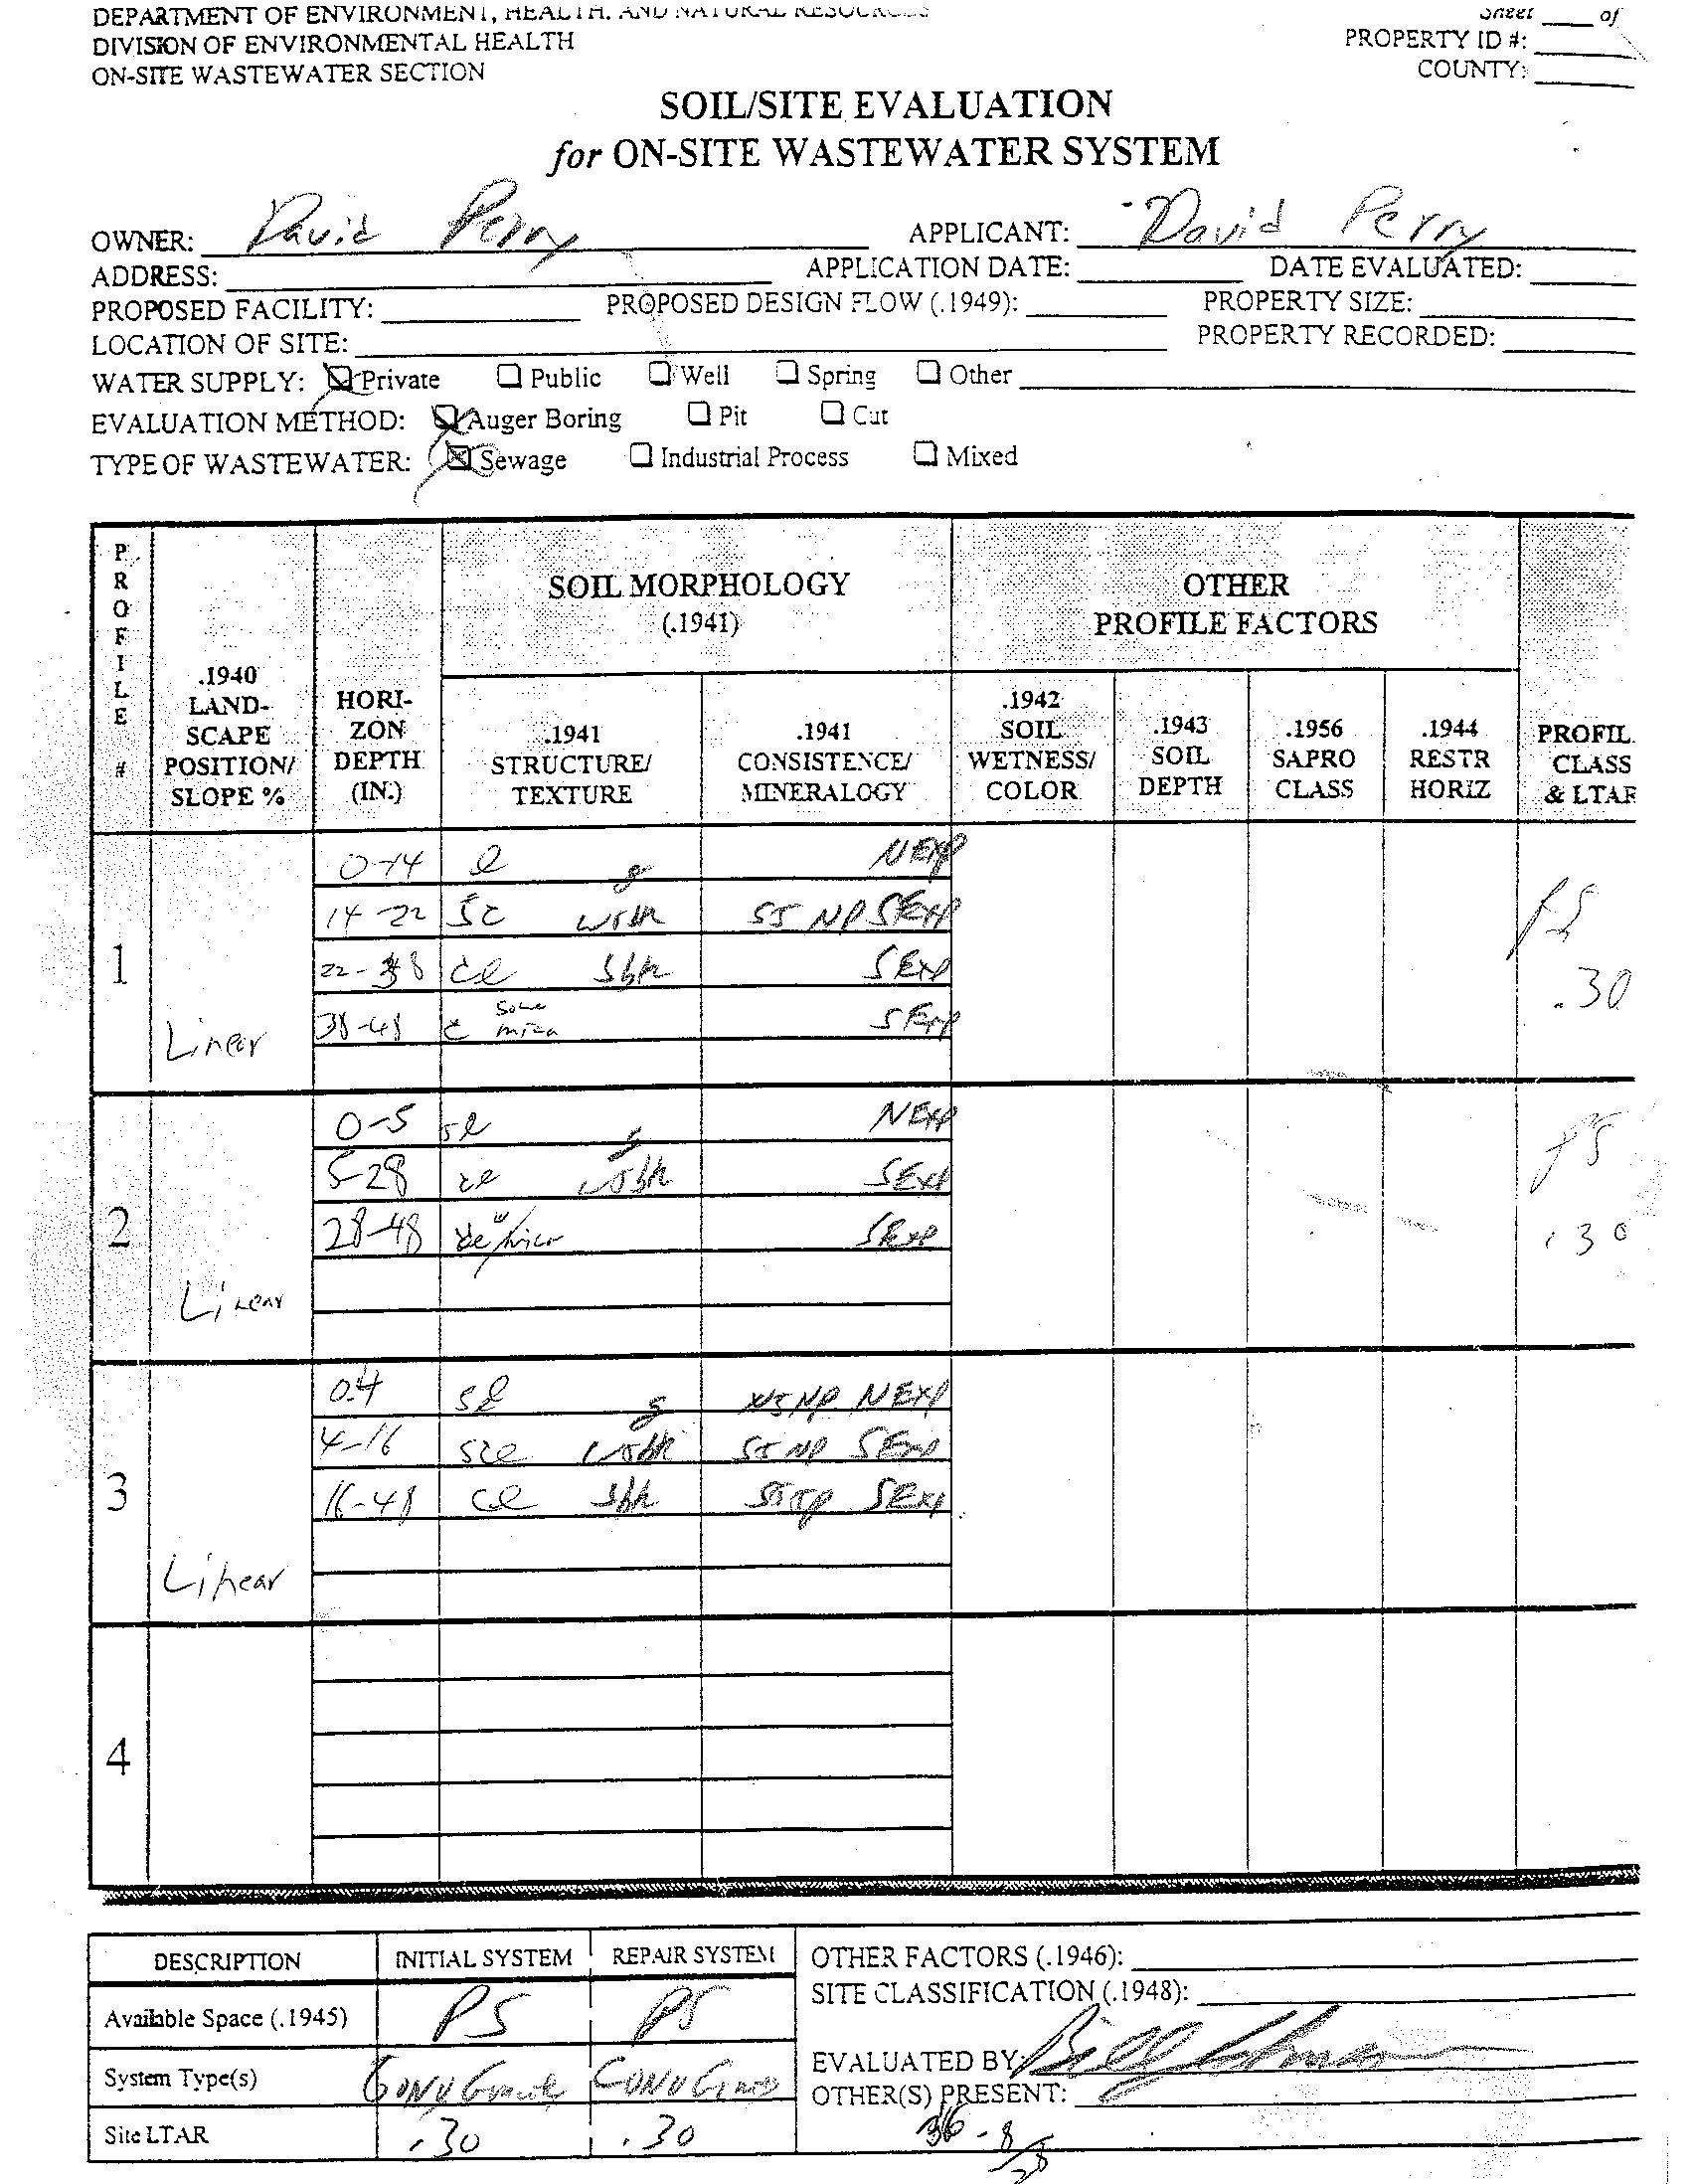 DEPARTMENT OF ENVIRONMENT, HEALTH, AND NATURAL RESOURCES
Sheet ____ of
DIVISION OF ENVIRONMENTAL HEALTH
PROPERTY ID #:
ON-SITE WASTEWATER SECTION
COUNTY:
SOIL/SITE EVALUATION
for ON-SITE WASTEWATER SYSTEM
OWNER: David Perry APPLICANT: David Perry
ADDRESS: APPLICATION DATE: DATE EVALUATED:
PROPOSED FACILITY: PROPOSED DESIGN FLOW (.1949): PROPERTY SIZE:
LOCATION OF SITE: PROPERTY RECORDED:
WATER SUPPLY: Private Public Well Spring Other
EVALUATION METHOD: Auger Boring Pit Cut
TYPE OF WASTEWATER: Sewage Industrial Process Mixed
PROFILE #
.1940 LAND-SCAPE POSITION/ SLOPE %
HORI-ZON DEPTH (IN.)
SOIL MORPHOLOGY (.1941)
.1941 STRUCTURE/ TEXTURE
.1941 CONSISTENCE/ MINERALOGY
OTHER PROFILE FACTORS
.1942 SOIL WETNESS/ COLOR
.1943 SOIL DEPTH
.1956 SAPRO CLASS
.1944 RESTR HORIZ
PROFIL CLASS & LTAR
1 Linear
0-14 l g NEXP
14-22 sc wsbk SS NP SEXP
22-38 cl sbk SEXP
38-48 c some mica SEXP
PS
.30
2 Linear
0-5 sl g NEXP
5-28 cl wsbk SEXP
28-48 SEXP
PS
.30
3 Linear
0-4 sl g NS NP NEXP
4-16 scl wsbk SS NP SEXP
16-48 cl sbk SEXP
4
DESCRIPTION INITIAL SYSTEM REPAIR SYSTEM
Available Space (.1945) PS PS
System Type(s)
Site LTAR .30 .30
OTHER FACTORS (.1946):
SITE CLASSIFICATION (.1948):
EVALUATED BY: Bill
OTHER(S) PRESENT: